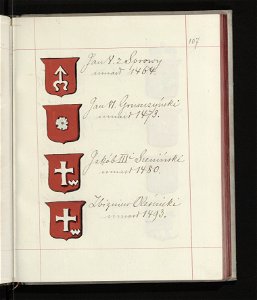 107
Jan V. z Sorowy
umarł 1464.
Jan VI. Gruszczyński
umarł 1473.
Jakób III. Sieniński
umarł 1480.
Zbigniew Oleśnicki
umarł 1493.